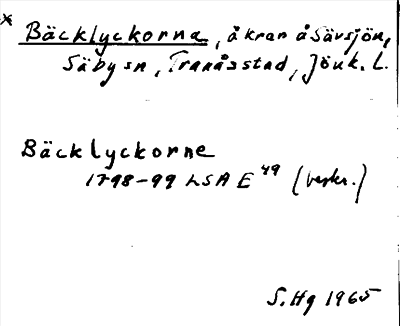 * Bäcklyckorna, åkrar å Sävsjön,
Säby sn, Tranås stad, Jönk. L.
Bäcklyckorne
1798-99 LSA E 49 (beskr.)
S. Hg 1965